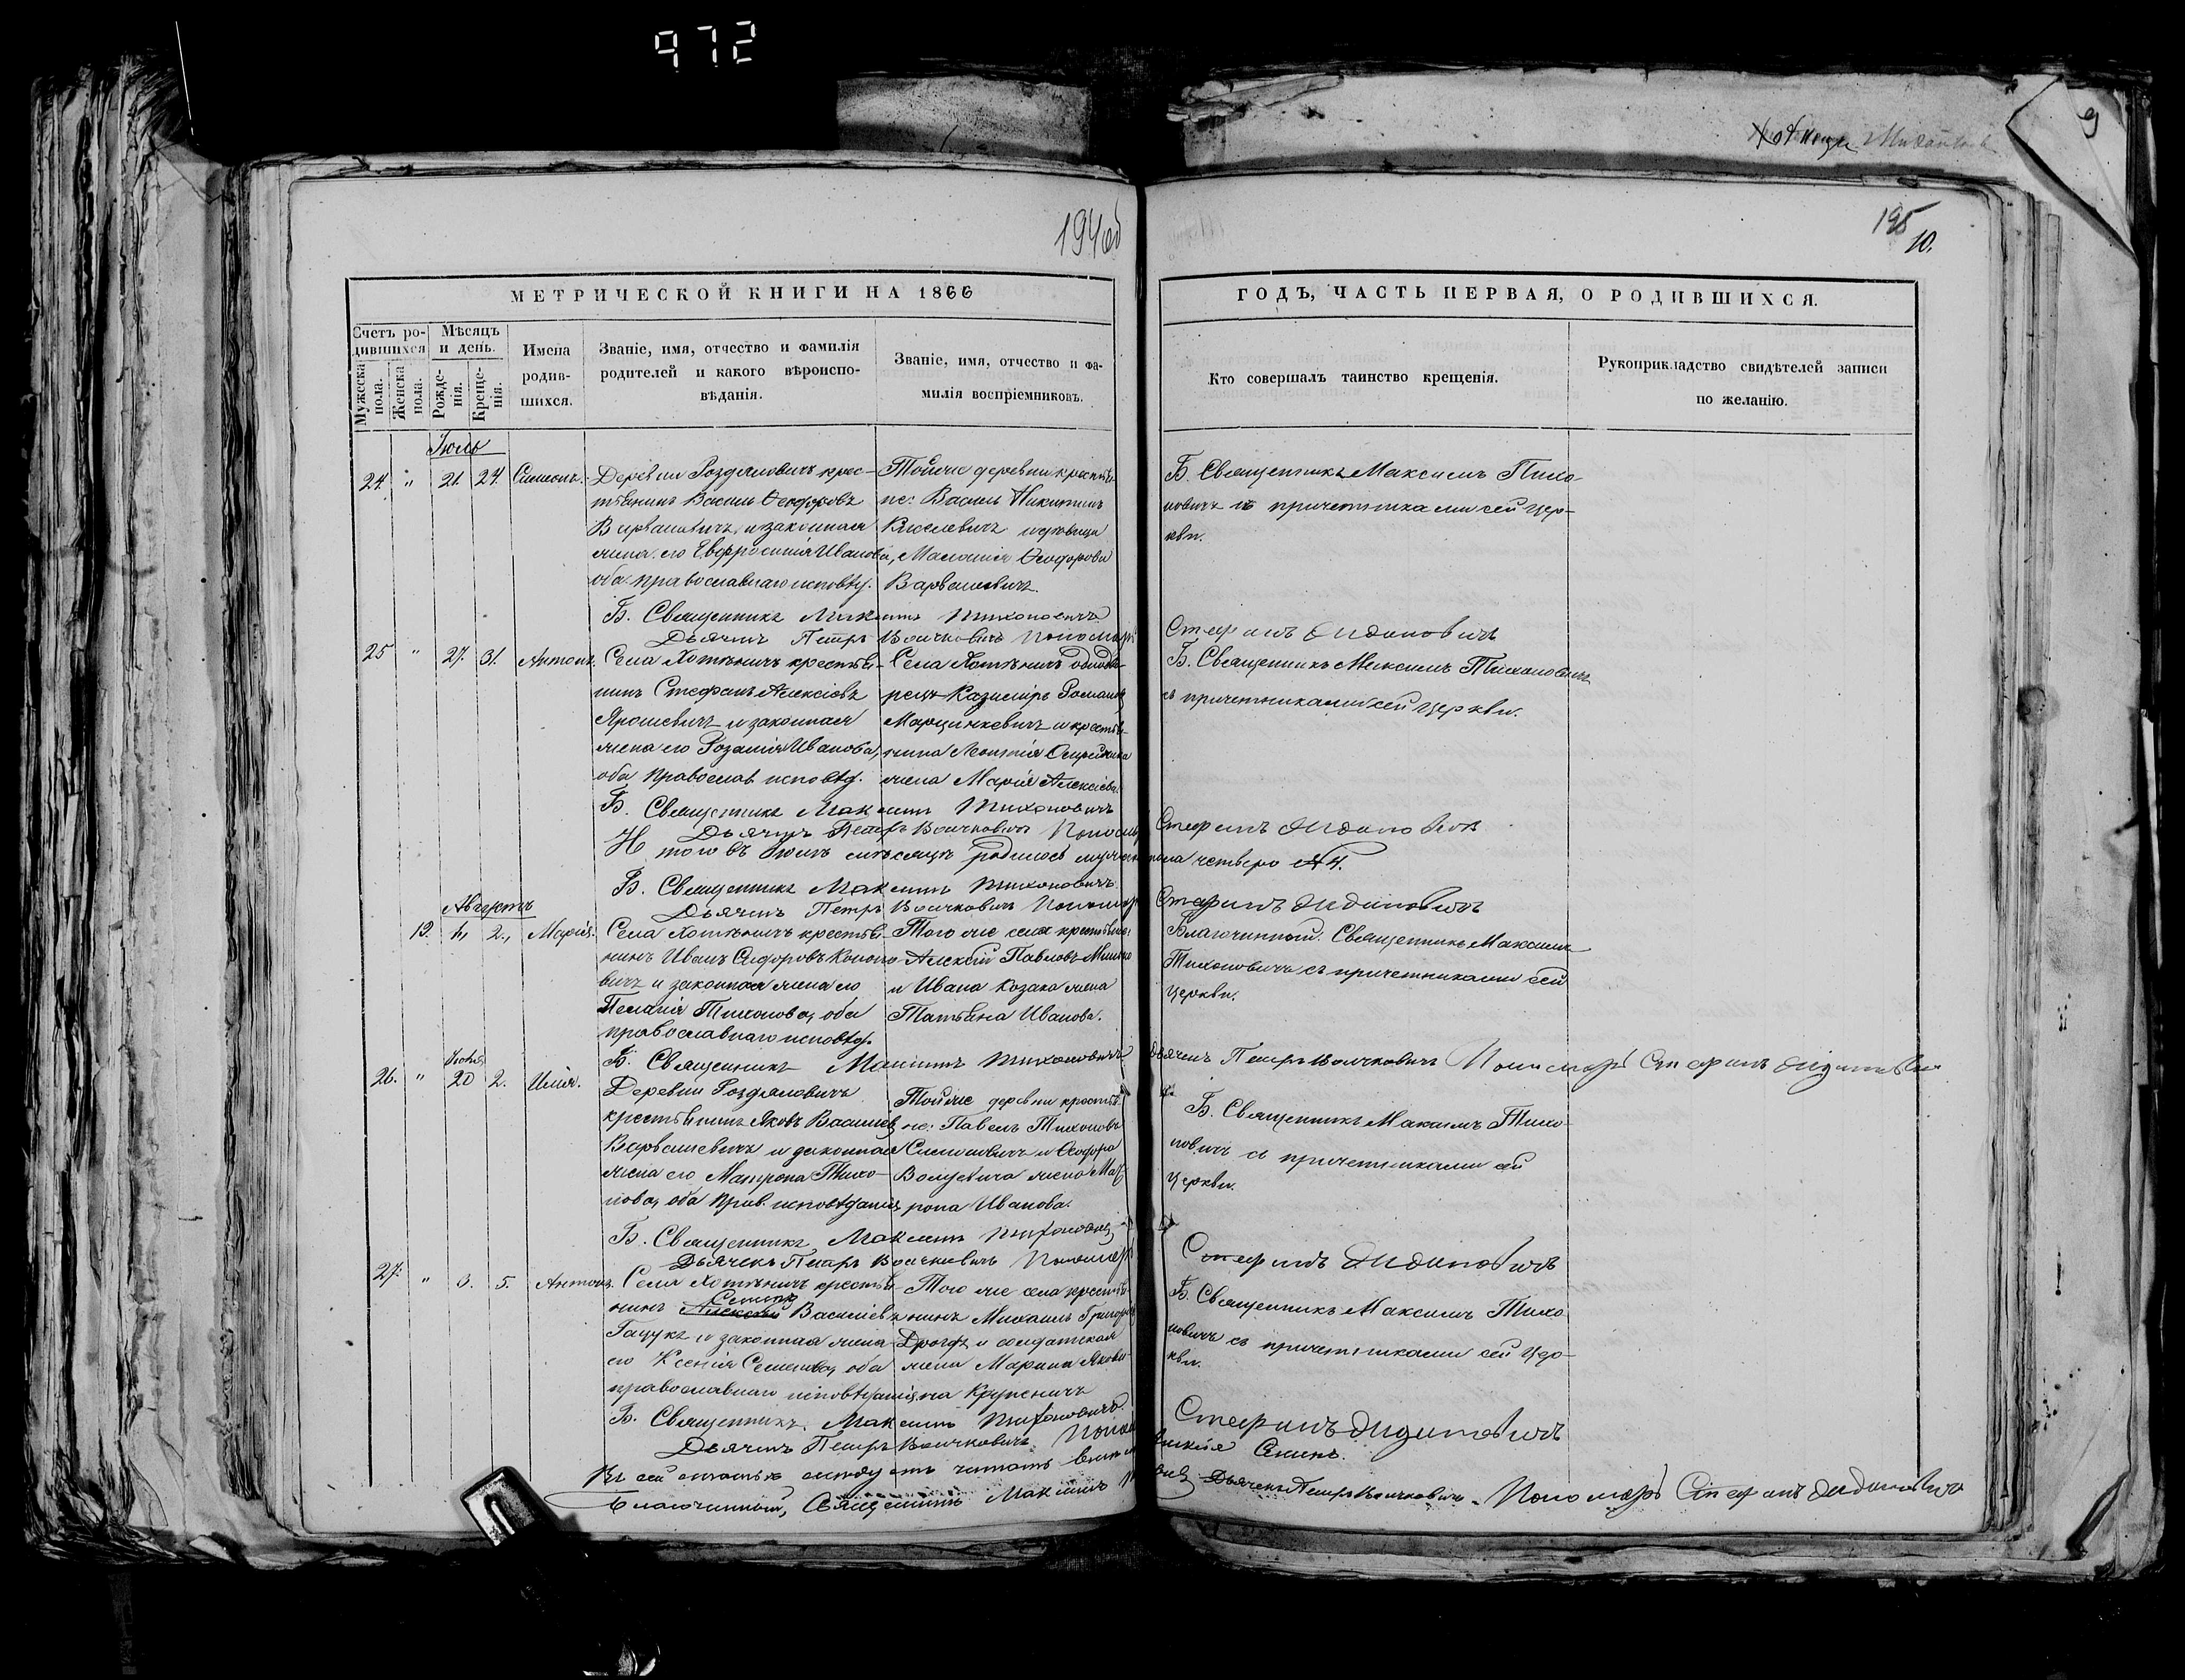 972
Хотеничи
9
194об
195
10.
МЕТРИЧЕСКОЙ КНИГИ НА 1866
ГОДЪ, ЧАСТЬ ПЕРВАЯ, О РОДИВШИХСЯ.
Счетъ родившихся
Мужеска пола.
Женска пола.
Мѣсяцъ и день.
Рожденія.
Крещенія.
Имена родившихся.
Званіе, имя, отчество и фамилія родителей и какого вѣроисповѣданія.
Званіе, имя, отчество и фамилія воспріемниковъ.
Кто совершалъ таинство крещенія.
Рукоприкладство свидѣтелей записи по желанію.
Іюль
24. " 21. 24. Симеонъ.
Деревни Роздяловичъ крес-
тьянинъ Василь Ѳеодоровъ
и законная
жена его Евфросинія Иванова,
оба православнаго исповѣд.
Тойже деревни крестья-
не: Василь Никитинъ
Киселевичъ и
Маланія Ѳеодорова
Варвашевичъ.
Б. Священникъ Максимъ Тихо-
новичъ съ причетниками сей цер-
кви.
Б. Священникъ Максимъ Тихоновичъ
Дьячекъ Петръ Воичковичъ Пономарь Стефанъ Дидиновичъ
25 " 27. 31. Антонъ.
Села Хотѣничъ крестья-
нинъ Стефанъ Алексіевъ
Ярошевичъ и законная
жена его Розалія Иванова,
оба православ исповѣд.
Села Хотѣничъ однодво-
рецъ Казиміръ Романовъ
Марцинкевичъ и крестья-
нина
жена Марія Алексіева
Б. Священникъ Максимъ Тихоновичъ
съ причетниками сей церкви.
Б. Священникъ Максимъ Тихоновичъ
Дьячекъ Петръ Воичковичъ Пономарь Стефанъ Дидиновичъ
Итого въ Іюлѣ мѣсяцѣ родилось мужеска пола четверо 4.
Б. Священникъ Максимъ Тихоновичъ.
Дьячекъ Петръ Воичковичъ Пономарь Стефанъ Дидиновичъ
Августъ
19. 2., Марія.
Села Хотѣничъ крестья-
нинъ Иванъ Сидоровъ Кононо-
вичъ и законная жена его
Пелагія Тихонова, оба
православнаго исповѣд.
Того же села крестьяне:
Алексій Павловъ
и Ивана Козака жена
Татьяна Иванова.
Благочинный. Священникъ Максимъ
Тихоновичъ съ причетниками сей
церкви.
Б. Священникъ Максимъ Тихоновичъ Дьячекъ Петръ Воичковичъ Пономарь Стефанъ Дидиновичъ
26. " 20 2. Илія.
Деревни Роздяловичъ
крестьянинъ Яковъ Василіевъ
Варвашевичъ и законная
жена его Матрона Тихо-
нова, оба прав. исповѣданія
Тойже деревни крестья-
не: Павелъ Тихоновъ
и Ѳеодора
жена Мат-
рона Иванова.
Б. Священникъ Максимъ Тихо-
новичъ съ причетниками сей
церкви.
Б. Священникъ Максимъ Тихоновичъ
Дьячекъ Петръ Воичковичъ Пономарь Стефанъ Дидиновичъ
27. " 3. 5. Антонъ.
Села Хотѣничъ крестья-
нинъ Василіевъ
Гацукъ и законная жена
его Ксенія Семенова, оба
православнаго исповѣданія
Того же села крестья-
нинъ Михаилъ Григорьевъ
Дроздъ и солдатская
жена Марина Яковле-
ва Крупеничъ
Б. Священникъ Максимъ Тихо-
новичъ съ причетниками сей цер-
кви.
Б. Священникъ Максимъ Тихоновичъ
Дьячекъ Петръ Воичковичъ Пономарь Стефанъ Дидиновичъ
Въ сей статьѣ слѣдуетъ читать
Благочинный, Священникъ Максимъ Дьячекъ Петръ Воичковичъ. Пономарь Стефанъ Дидиновичъ